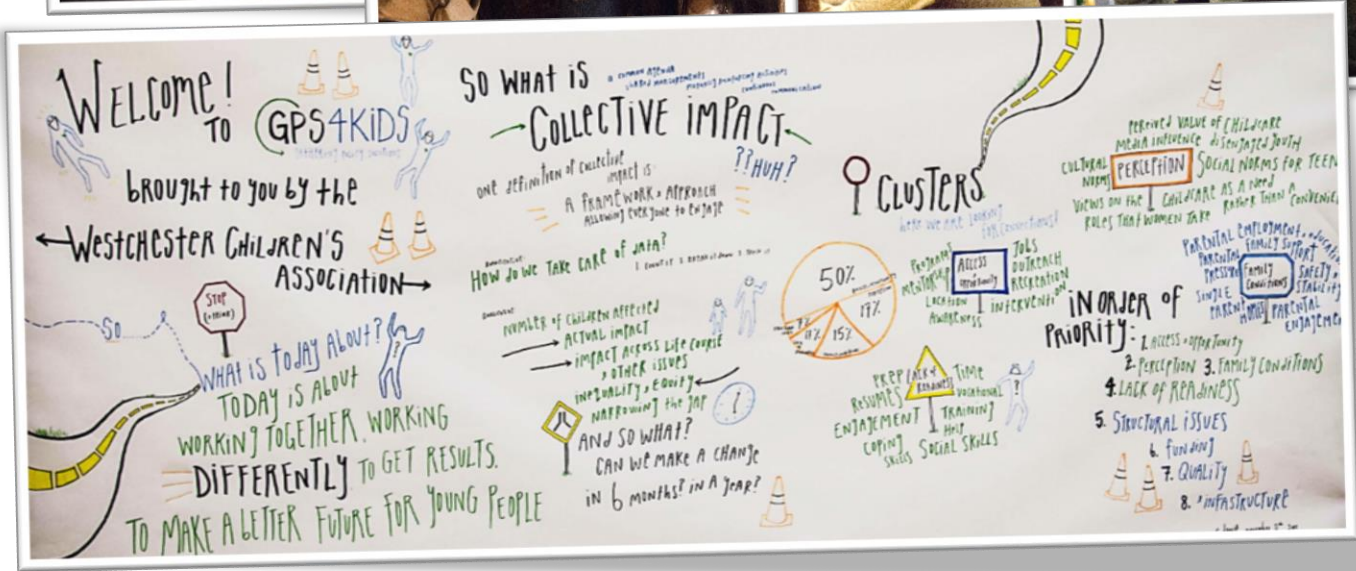 WELCOME!
TO GPS4KIDS
brought to you by the
WESTCHESTER CHILDREN'S
ASSOCIATION
So
STOP
WHAT IS TODAY ABOUT?
TODAY IS ABOUT
WORKING TOGETHER, WORKING
DIFFERENTLY TO GET RESULTS.
TO MAKE A BETTER FUTURE FOR YOUNG PEOPLE
SO WHAT IS
a common agenda
COLLECTIVE IMPACT
??HUH?
ONE DEFINITION OF COLLECTIVE
IMPACT IS:
A FRAMEWORK + APPROACH
ALLOWING EVERYONE TO ENGAGE
HOW DO WE TAKE CARE OF DATA?
NUMBER OF CHILDREN AFFECTED
ACTUAL IMPACT
IMPACT ACROSS LIFE COURSE
+ OTHER ISSUES
INEQUALITY + EQUITY
NARROWING THE GAP
AND SO WHAT?
CAN WE MAKE A CHANGE
IN 6 MONTHS? IN A YEAR?
50%
17%
15%
CLUSTERS
here we are looking
for connections!
PROGRAM
MENTORSHIP
LOCATION
AWARENESS
ACCESS
JOBS
OUTREACH
RECREATION
INTERVENTION
PREP
RESUMES
ENGAGEMENT
COPING
SKILLS
LACK of
READINESS
TIME
VOCATIONAL
TRAINING
HELP
SOCIAL SKILLS
PERCEIVED VALUE OF CHILDCARE
MEDIA INFLUENCE DISENGAGED YOUTH
CULTURAL
NORMS
PERCEPTION
SOCIAL NORMS FOR TEEN
CHILDCARE AS A NEED
RATHER THAN A CONVENIE
VIEWS ON THE
ROLES THAT WOMEN TAKE
PARENTAL EMPLOYMENT
FAMILY SUPPORT
PARENTAL
PRESSURE
FAMILY
CONDITIONS
SAFETY
STABILITY
SINGLE
PARENT
PARENTAL
ENGAGEME
IN ORDER OF
PRIORITY:
1. ACCESS + OPPORTUNITY
2. PERCEPTION 3. FAMILY CONDITIONS
4. LACK OF READINESS
5. STRUCTURAL ISSUES
6. FUNDING
7. QUALITY
8. INFASTRUCTURE